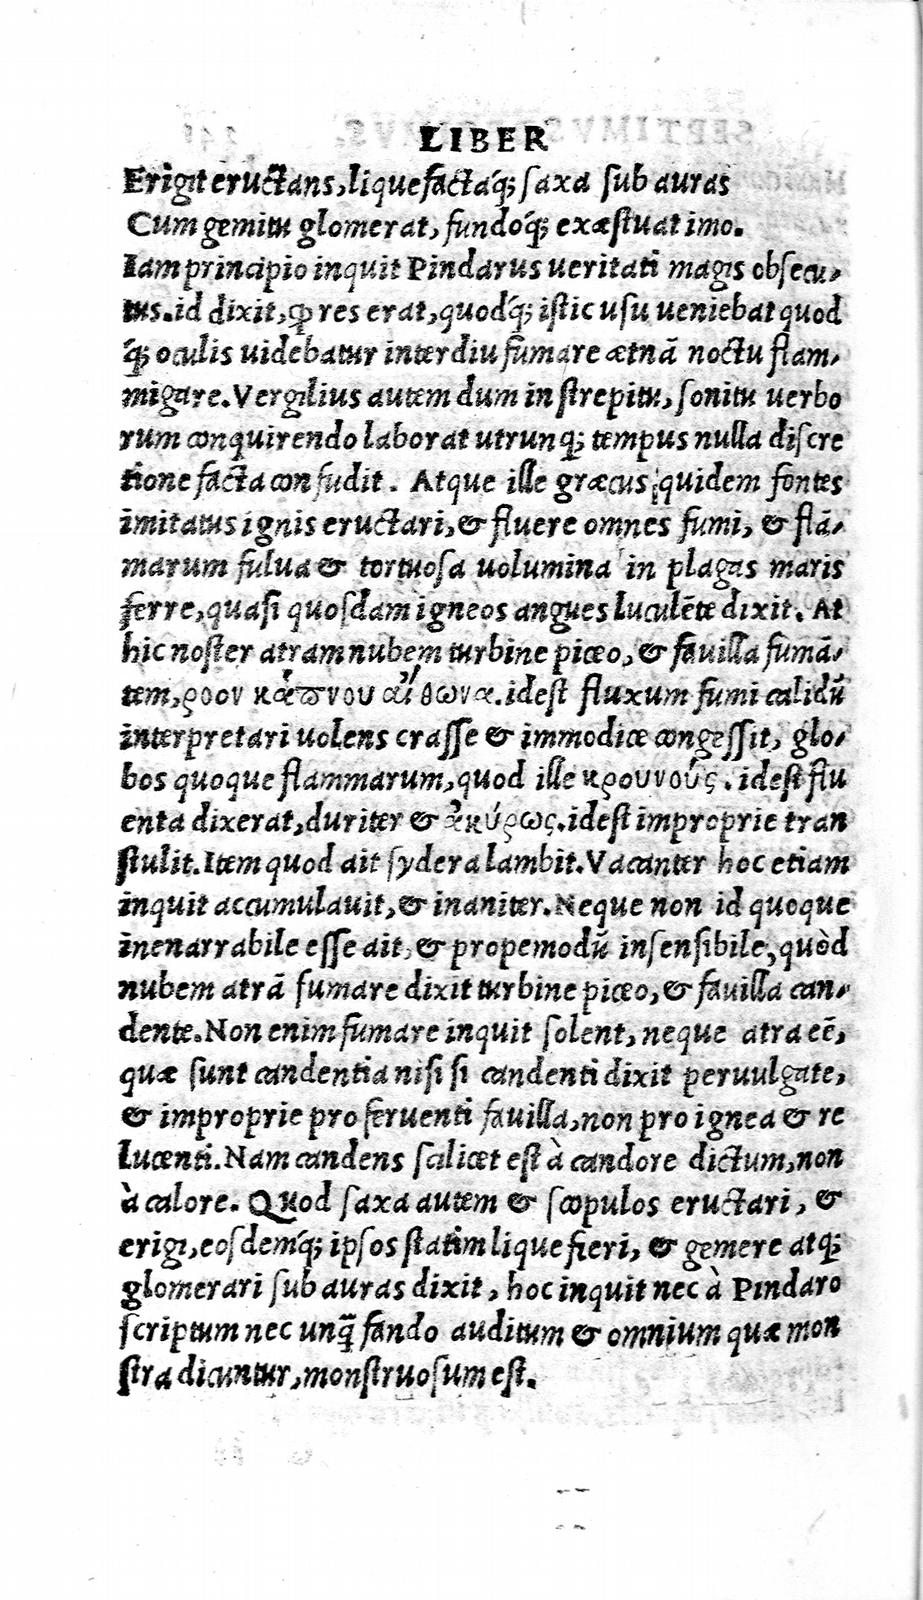 LIBER
Erigit eructans, liquefactaq́; saxa sub auras
Cum gemitu glomerat, fundoq́; exæstuat imo.
Iam principio inquit Pindarus ueritati magis obsecu-
tus. id dixit, ꝙ res erat, quodq́; istic usu ueniebat quod
q́; oculis uidebatur interdiu fumare ætnā noctu flam-
migare. Vergilius autem dum in strepitu, sonitu uerbo
rum conquirendo laborat utrunq; tempus nulla discre
tione facta confudit. Atque ille græcus quidem fontes
imitatus ignis eructari, & fluere omnes fumi, & flā-
marum fulua & tortuosa uolumina in plagas maris
ferre, quasi quosdam igneos angues luculēte dixit. At
hic noster atram nubem turbine piceo, & fauilla fumā-
tem, ροον κάπνου αἴθωνα. idest fluxum fumi calidū
interpretari uolens crasse & immodice congessit, glo-
bos quoque flammarum, quod ille κρουνούς. idest flu
enta dixerat, duriter & ἀκύρως. idest improprie tran
stulit. Item quod ait sydera lambit. Vacanter hoc etiam
inquit accumulauit, & inaniter. Neque non id quoque
inenarrabile esse ait, & propemodū insensibile, quòd
nubem atrā fumare dixit turbine piceo, & fauilla can-
dente. Non enim fumare inquit solent, neque atra eē,
quæ sunt candentia nisi si candenti dixit peruulgate,
& improprie pro feruenti fauilla, non pro ignea & re
lucenti. Nam candens scilicet est à candore dictum, non
à calore. Quod saxa autem & scopulos eructari, &
erigi, eosdemq́; ipsos statim liquefieri, & gemere atq;
glomerari sub auras dixit, hoc inquit nec à Pindaro
scriptum nec unq̄ fando auditum & omnium quæ mon
stra dicuntur, monstruosum est.